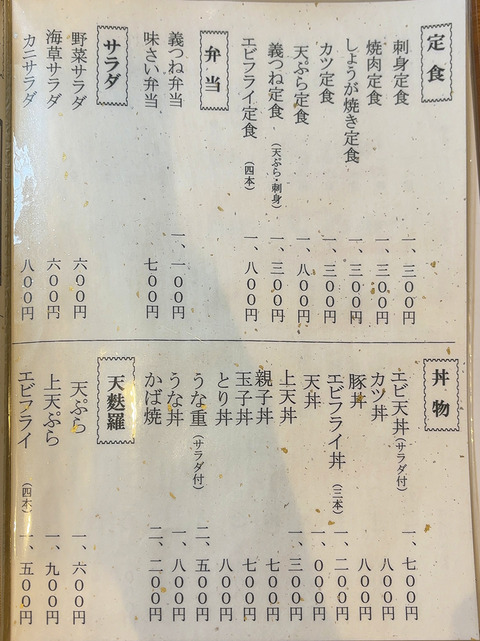 定食
刺身定食 一、三〇〇円
焼肉定食 一、三〇〇円
しょうが焼き定食 一、三〇〇円
カツ定食 一、三〇〇円
天ぷら定食 一、八〇〇円
義つね定食（天ぷら・刺身） 一、三〇〇円
エビフライ定食（四本） 一、八〇〇円
弁当
義つね弁当 一、一〇〇円
味さい弁当 七〇〇円
サラダ
野菜サラダ 六〇〇円
海草サラダ 六〇〇円
カニサラダ 八〇〇円
丼物
エビ天丼（サラダ付） 一、七〇〇円
カツ丼 八〇〇円
豚丼 八〇〇円
エビフライ丼（三本） 一、二〇〇円
天丼 一、〇〇〇円
上天丼 一、三〇〇円
親子丼 七〇〇円
玉子丼 七〇〇円
とり丼 八〇〇円
うな重（サラダ付） 二、五〇〇円
うな丼 一、八〇〇円
かば焼 二、二〇〇円
天麩羅
天ぷら 一、六〇〇円
上天ぷら 一、九〇〇円
エビフライ（四本） 一、五〇〇円